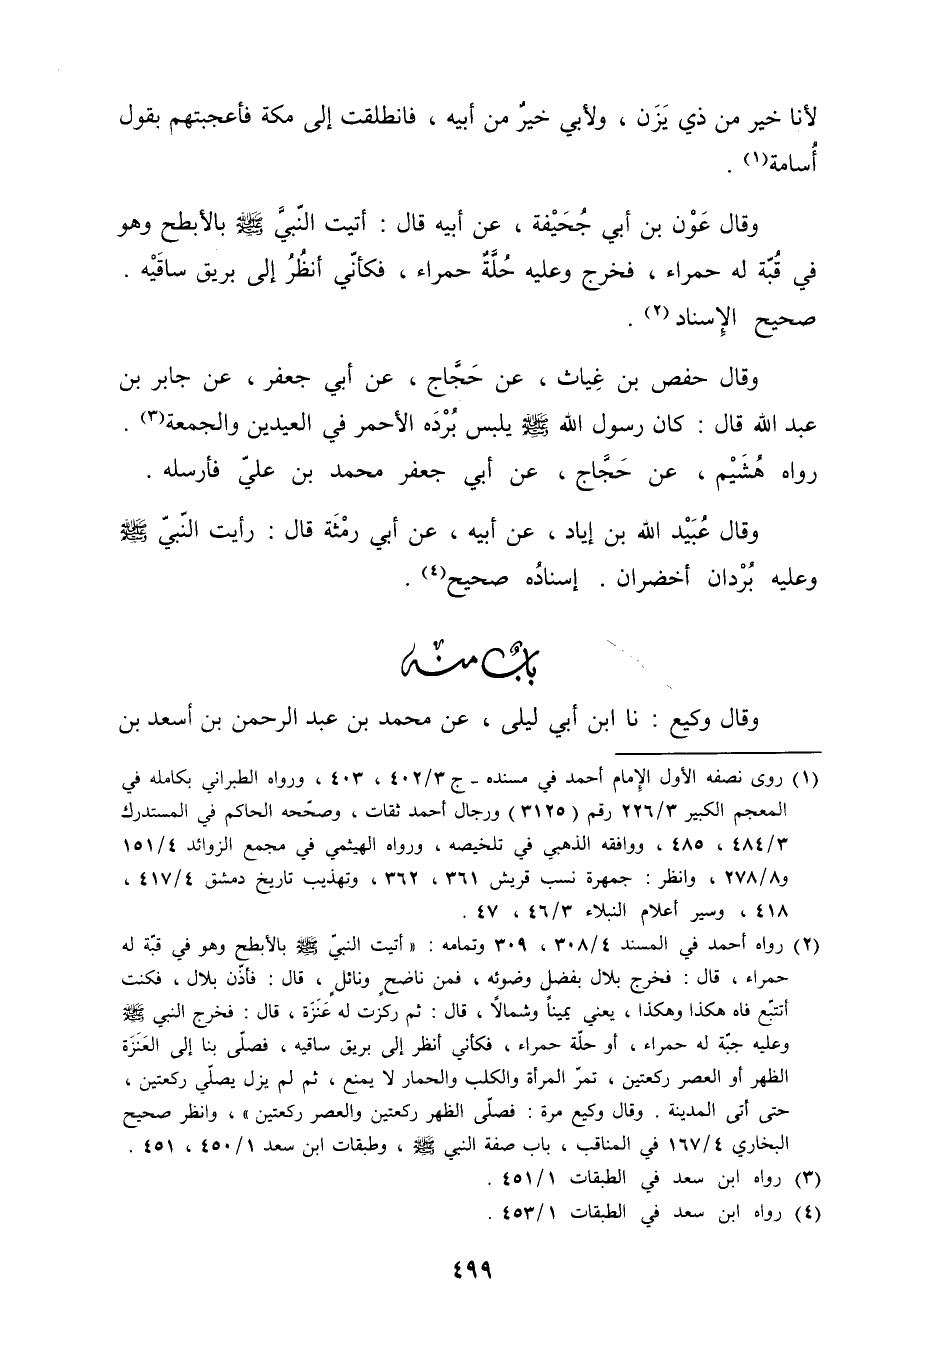 لأنا خير من ذي يَزَن ، ولأبي خيرٌ من أبيه ، فانطلقت إلى مكة فأعجبتهم بقول
أُسامة(١) .
وقال عَوْن بن أبي جُحَيْفة ، عن أبيه قال : أتيت النّبيَّ ﷺ بالأبطح وهو
في قُبّة له حمراء ، فخرج وعليه حُلَّةٌ حمراء ، فكأنّي أنظُرُ إلى بريق ساقَيْه .
صحيح الإِسناد(٢) .
وقال حفص بن غِياث ، عن حَجَّاج ، عن أبي جعفر ، عن جابر بن
عبد الله قال : كان رسول الله ﷺ يلبس بُرْدَه الأحمر في العيدين والجمعة(٣) .
رواه هُشَيْم ، عن حَجَّاج ، عن أبي جعفر محمد بن عليّ فأرسله .
وقال عُبَيْد الله بن إياد ، عن أبيه ، عن أبي رِمْثَة قال : رأيت النّبيّ ﷺ
وعليه بُرْدان أخضران . إسنادُه صحيح(٤) .
بابٌ منه
وقال وكيع : نا ابن أبي ليلى ، عن محمد بن عبد الرحمن بن أسعد بن
(١) روى نصفه الأول الإمام أحمد في مسنده - ج ٤٠٢/٣ ، ٤٠٣ ، ورواه الطبراني بكامله في
المعجم الكبير ٢٢٦/٣ رقم (٣١٢٥) ورجال أحمد ثقات ، وصحّحه الحاكم في المستدرك
٤٨٤/٣ ، ٤٨٥ ، ووافقه الذهبي في تلخيصه ، ورواه الهيثمي في مجمع الزوائد ١٥١/٤
و٢٧٨/٨ ، وانظر : جمهرة نسب قريش ٣٦١ ، ٣٦٢ ، وتهذيب تاريخ دمشق ٤١٧/٤ ،
٤١٨ ، وسير أعلام النبلاء ٤٦/٣ ، ٤٧ .
(٢) رواه أحمد في المسند ٣٠٨/٤ ، ٣٠٩ وتمامه : « أتيت النبيّ ﷺ بالأبطح وهو في قبّة له
حمراء ، قال : فخرج بلال بفضل وضوئه ، فمن ناضحٍ ونائلٍ ، قال : فأذّن بلال ، فكنت
أتتبّع فاه هكذا وهكذا ، يعني يميناً وشمالاً ، قال : ثم ركزت له عَنَزَة ، قال : فخرج النبي ﷺ
وعليه جبّة له حمراء ، أو حلّة حمراء ، فكأني أنظر إلى بريق ساقيه ، فصلّى بنا إلى العَنَزَة
الظهر أو العصر ركعتين ، تمرّ المرأة والكلب والحمار لا يمنع ، ثم لم يزل يصلّي ركعتين ،
حتى أتى المدينة . وقال وكيع مرة : فصلّى الظهر ركعتين والعصر ركعتين » ، وانظر صحيح
البخاري ١٦٧/٤ في المناقب ، باب صفة النبي ﷺ ، وطبقات ابن سعد ٤٥٠/١ ، ٤٥١ .
(٣) رواه ابن سعد في الطبقات ٤٥١/١ .
(٤) رواه ابن سعد في الطبقات ٤٥٣/١ .
٤٩٩